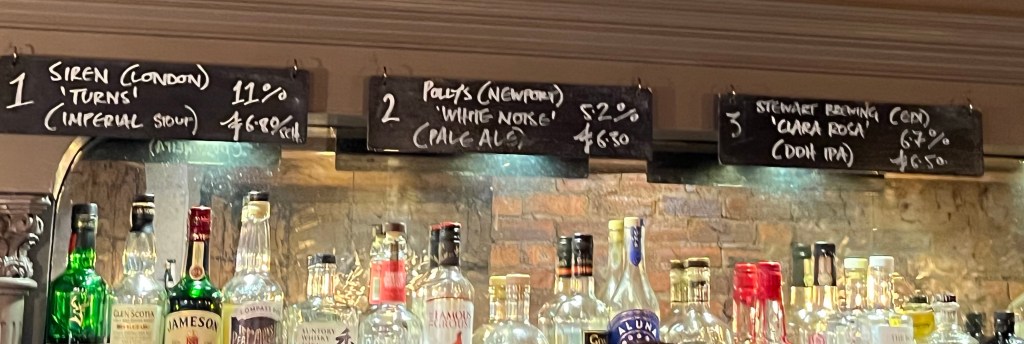 1
SIREN (LONDON)
'TURNS' 11%
(IMPERIAL STOUT) £6.80/
2
POLLY'S (NEWPORT)
'WHITE NOISE' 5.2%
(PALE ALE) £6.30
3
STEWART BREWING (EDI)
'CLARA ROSA' 6.7%
(DDH IPA) £6.50
GLEN SCOTIA
JAMESON
COMPASS
SUNTORY
WHISKY
FAMOUS
GROUSE
ALUNA